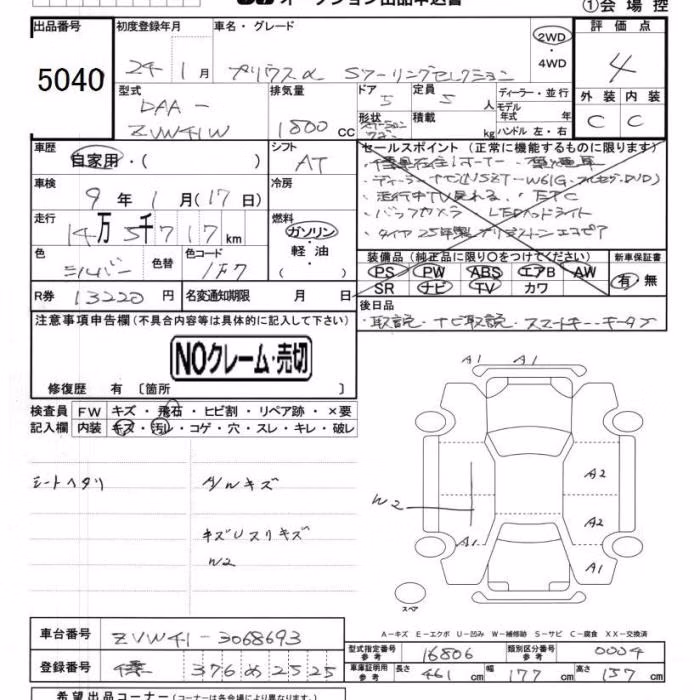 ①会場控
出品番号
5040
初度登録年月
24年1月
車名・グレード
プリウスα Sツーリングセレクション
2WD
・4WD
評価点
4
外装 内装
C C
型式
DAA-
ZVW41W
排気量
1800 CC
ドア 5
定員 5 人
形状
積載 kg
ディーラー・並行
モデル年式 年
ハンドル 左・右
車歴
自家用・( )
シフト
AT
車検
9年1月(17日)
冷房
走行
14万5千717 km
燃料
ガソリン
・軽油
・( )
色
シルバー
色替
色コード
1F7
R券 13220円
名変通知期限 月 日
セールスポイント(正常に機能するものに限ります)
・ディーラーナビ(NSZT-W61G・フルセグ・DVD)
・走行中TV見れる ・ETC
・バックカメラ LEDヘッドライト
・タイヤ25年製ブリヂストンエコピア
装備品(純正品に限り○をつけてください)
PS PW ABS エアB AW
SR ナビ TV カワ
新車保証書
有・無
後日品
・取説・ナビ取説・スマートキー
注意事項申告欄(不具合内容等は具体的に記入して下さい)
NOクレーム・売切
修復歴 有〔箇所 〕
検査員 FW キズ・飛石・ヒビ割・リペア跡・×要
記入欄 内装 キズ・汚レ・コゲ・穴・スレ・キレ・破レ
シートヘタリ
A/Wキズ
キズUスリキズ
W2
A1 A1
A2
W2
A2
A1
A1
スペア
A-キズ E-エクボ U-凹み W-補修跡 S-サビ C-腐食 XX-交換済
車台番号 ZVW41-3068693
登録番号 376 め 2525
型式指定番号 参考 16806
類別区分番号 参考 0004
車庫証明用 参考 長さ 461cm 幅 177cm 高さ 157cm
希望出品コーナー(各会場により異なります)